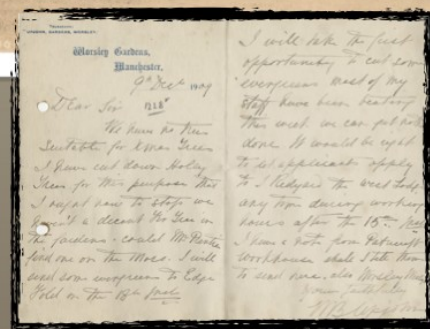 Worsley Gardens,
Manchester.
9th Dec 1909
Dear Sir
We have no trees
suitable for Xmas Trees
I have cut down Holly
Trees for this purpose that
I ought not to
haven't a decent Fir Tree in
the gardens. could Mr
find one on the Moss. I will
send some evergreens to Edge
Fold on the 18th Inst
I will take the first
opportunity to cut some
evergreens most of my
staff have been beating
this week we can get not
done. It would be right
to let applicants apply
to J Redyard the West Lodge
any time during working
hours after the 15th
I have a note from Patricroft
Workhouse shall I tell them
to send here, also
Yours faithfully